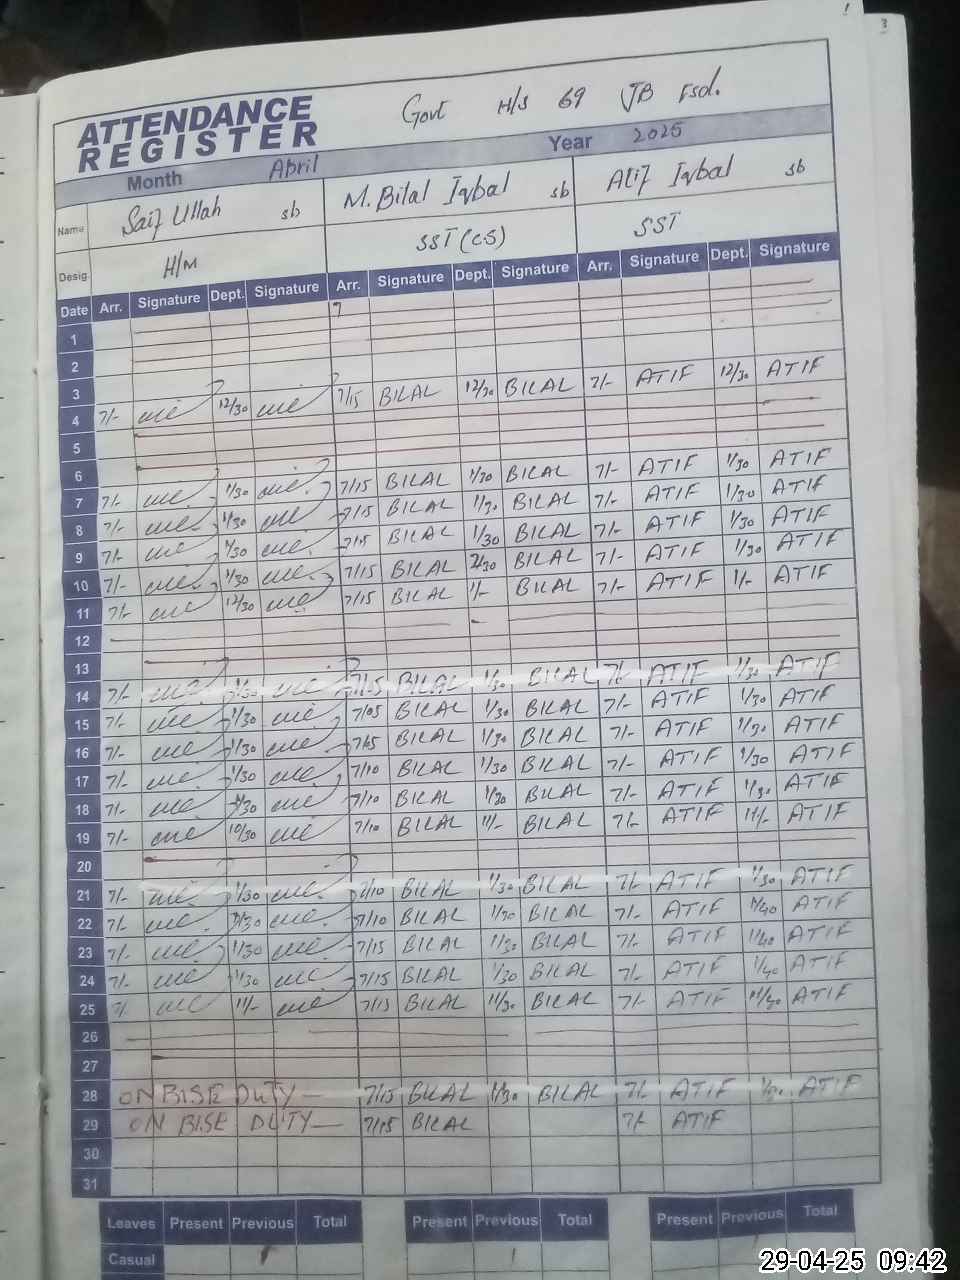 ATTENDANCE REGISTER Govt H/S 69 JB Fsd.
Month April Year 2025
Name Saif Ullah sb M. Bilal Iqbal sb Atif Iqbal sb
Desig. H/M SST (CS) SST
Date Arr. Signature Dept. Signature Arr. Signature Dept. Signature Arr. Signature Dept. Signature
1
2
3
4 7/- 12/30 7/15 BILAL 12/30 BILAL 7/- ATIF 12/30 ATIF
5
6
7 7/- 1/30 7/15 BILAL 1/30 BILAL 7/- ATIF 1/30 ATIF
8 7/- 1/30 7/15 BILAL 1/30 BILAL 7/- ATIF 1/30 ATIF
9 7/- 1/30 7/15 BILAL 1/30 BILAL 7/- ATIF 1/30 ATIF
10 7/- 1/30 7/15 BILAL BILAL 7/- ATIF 1/30 ATIF
11 7/- 12/30 7/15 BILAL 1/- BILAL 7/- ATIF 1/- ATIF
12
13
14 7/- 1/30 7/15 BILAL 1/30 BILAL 7/- ATIF 1/30 ATIF
15 7/- 1/30 7/05 BILAL 1/30 BILAL 7/- ATIF 1/30 ATIF
16 7/- 1/30 BILAL 1/30 BILAL 7/- ATIF 1/30 ATIF
17 7/- 1/30 7/10 BILAL 1/30 BILAL 7/- ATIF 1/30 ATIF
18 7/- 1/30 7/10 BILAL 1/30 BILAL 7/- ATIF 1/30 ATIF
19 7/- 10/30 7/10 BILAL 11/- BILAL 7/- ATIF 11/- ATIF
20
21 7/- 1/30 7/10 BILAL 1/30 BILAL 7/- ATIF 1/30 ATIF
22 7/- 1/30 7/10 BILAL 1/30 BILAL 7/- ATIF 1/40 ATIF
23 7/- 1/30 7/15 BILAL 1/30 BILAL 7/- ATIF 1/40 ATIF
24 7/- 1/30 7/15 BILAL 1/30 BILAL 7/- ATIF 1/40 ATIF
25 7/- 11/- 7/15 BILAL 11/30 BILAL 7/- ATIF 11/40 ATIF
26
27
28 ON BISE DUTY 7/15 BILAL 1/30 BILAL 7/- ATIF ATIF
29 ON BISE DUTY 7/15 BILAL 7/- ATIF
30
31
Leaves Present Previous Total Present Previous Total Present Previous Total
Casual
29-04-25 09:42